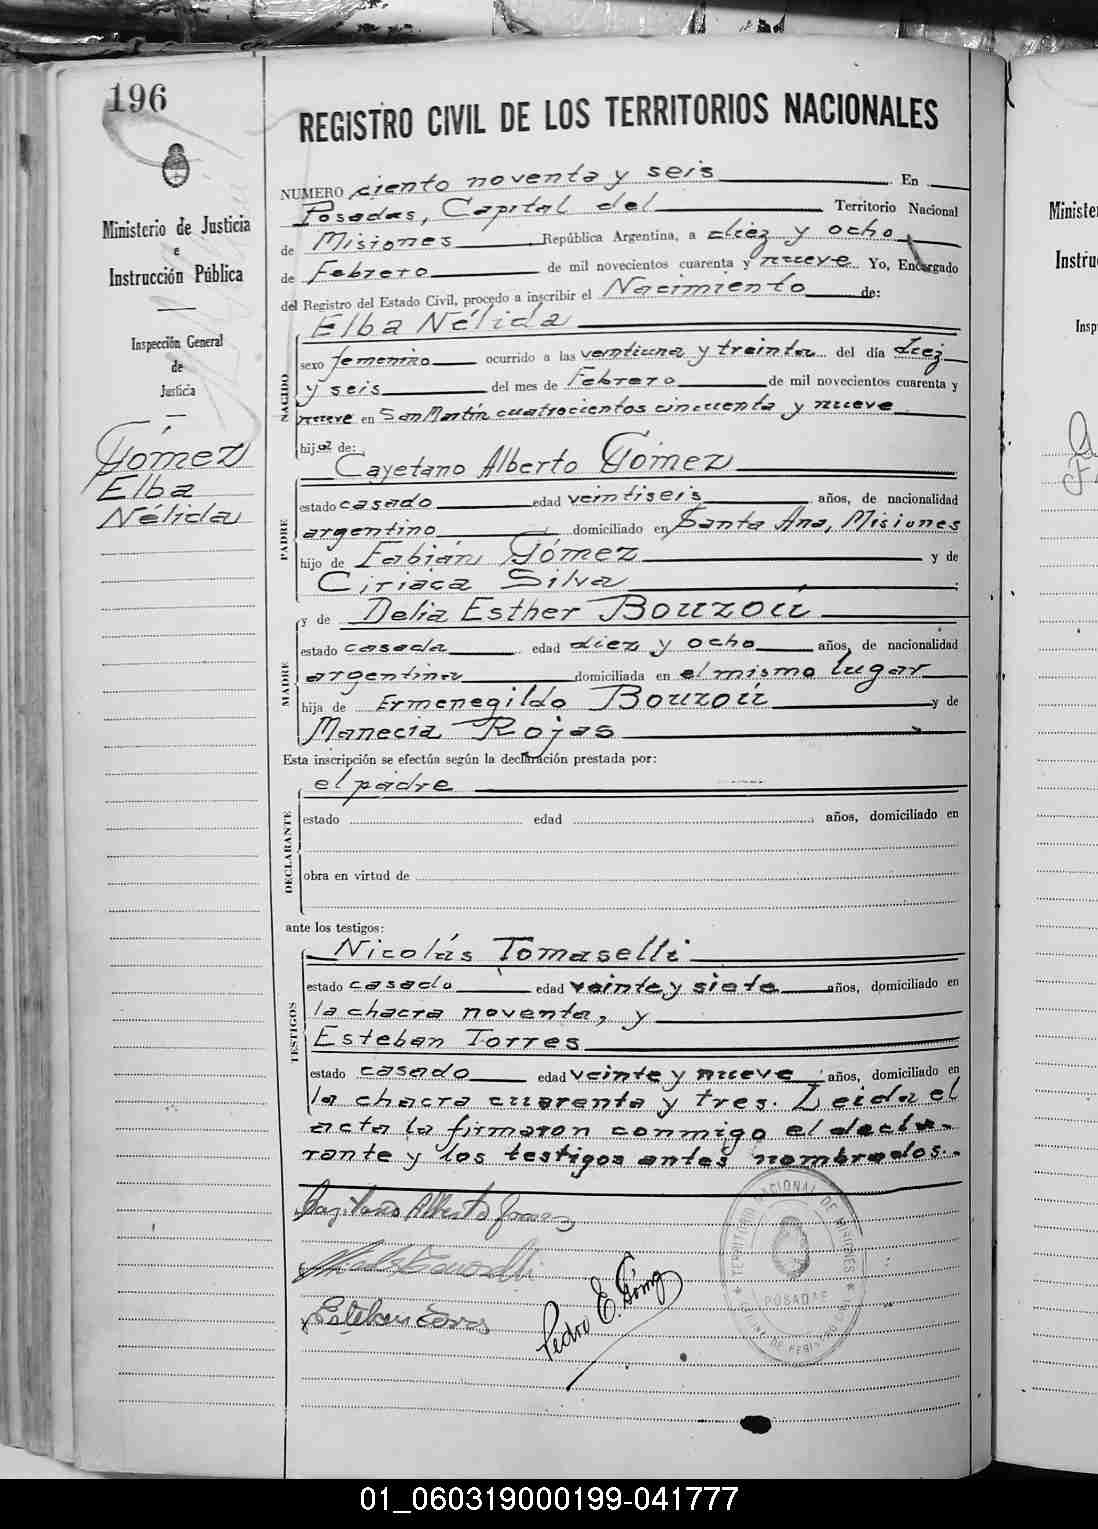 196
REGISTRO CIVIL DE LOS TERRITORIOS NACIONALES
Ministerio de Justicia
e
Instrucción Pública
Inspección General
de
Justicia
Gómez
Elba
Nélida
NUMERO ciento noventa y seis En
Posadas, Capital del Territorio Nacional
de Misiones República Argentina, a diez y ocho
de Febrero de mil novecientos cuarenta y nueve Yo, Encargado
del Registro del Estado Civil, procedo a inscribir el Nacimiento de:
NACIDO
Elba Nélida
sexo femenino ocurrido a las veintiuna y treinta del día diez
y seis del mes de Febrero de mil novecientos cuarenta y
nueve en San Martín cuatrocientos cincuenta y nueve
hija de:
PADRE
Cayetano Alberto Gómez
estado casado edad veintiseis años, de nacionalidad
argentino domiciliado en Santa Ana, Misiones
hijo de Fabián Gómez y de
Ciriaca Silva ;
y de Delia Esther Bouzoú
MADRE
estado casada edad diez y ocho años, de nacionalidad
argentina domiciliada en el mismo lugar
hija de Ermenegildo Bouzoú y de
Manecia Rojas
Esta inscripción se efectúa según la declaración prestada por:
DECLARANTE
el padre
estado edad años, domiciliado en
obra en virtud de
ante los testigos:
TESTIGOS
Nicolás Tomaselli
estado casado edad veinte y siete años, domiciliado en
la chacra noventa, y
Esteban Torres
estado casado edad veinte y nueve años, domiciliado en
la chacra cuarenta y tres. Leida el
acta la firmaron conmigo el decla-
rante y los testigos antes nombrados.
Cayetano Alberto Gomez
Esteban Torres
Pedro E. Gómez
TERRITORIO NACIONAL DE MISIONES
POSADAS
Ministe
Instru
Insp
01_060319000199-041777